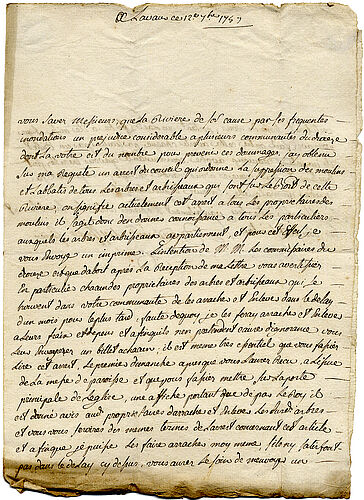 A Lavaur ce 12e 7bre 1747
vous savez Messieurs, que la Riviere de sor cause par ses frequentes
inondations un prejudice considerable a plusieurs communautés du dioceze
dont la votre est du nombre pour prevenir ces dommages, j'ay obtenu
sur ma Requete un arrest du conseil qui ordonne la supression des moulins
et abbatis de tous les arbres et arbrisseaux qui sont sur le bord de cette
Riviere on signifie actuellement cet arrest a tous les proprietaires des
moulins il s'agit d'en donner connoissance a tous les particuliers
auxquels les arbres et arbrisseaux appartiennent, et pour cet effet, je
vous Envoye un imprimé. L'intention de M.M. Les commissaires du
dioceze est que dabort apres La Reception de ma Lettre vous avertissiés
En particulier chacun des proprietaires des arbres et arbrisseaux qui se
trouvent dans votre communauté de les arracher et Enlever dans le delay
d'un mois pour le plus tard, faute de quoy, je les feray arracher et Enlever
a Leurs fraix et depens et afin quils n'en pretendent cause d'ignorance vous
Leur Envoyerez un billet a chacun, il est meme tres essentiel que vous fassiez
Lire cet arrest, Le premier dimanche apres que vous L'aurez Recu, a L'issue
de La messe de paroisse et que vous fassiez mettre sur La porte
principale de Leglise, une affiche portant que de par Le Roy, il
est donné avis aux proprietaires d'arracher et Enlever Lesdits arbres
et vous vous servirez des memes termes de L'arrest concernant cet article
et afin que je puisse Les faire arracher moy meme, s'ils n'y satisfont
pas dans le delay cy dessus, vous aurez Le soin de m'envoyer un